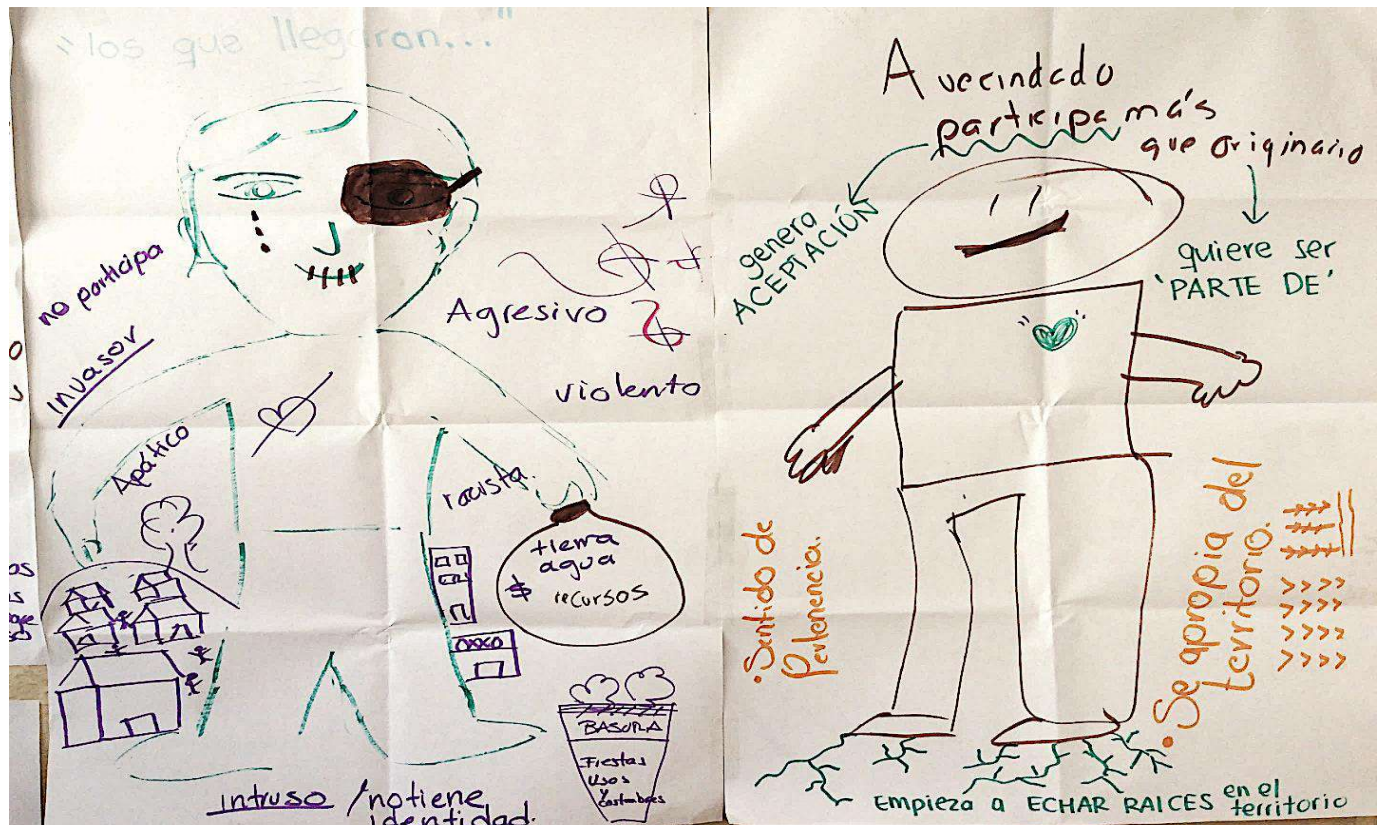 "los que llegaron..."
no participa
invasor
Agresivo
violento
Apático
racista.
tierra
agua
$ recursos
OXXO
BASURA
Fiestas
Usos
y
Costumbres
intruso / no tiene
identidad.
Avecindado
participa más
que originario
genera
ACEPTACIÓN
quiere ser
'PARTE DE'
• Sentido de
Pertenencia.
• Se apropia del
territorio.
Empieza a ECHAR RAICES en el
territorio